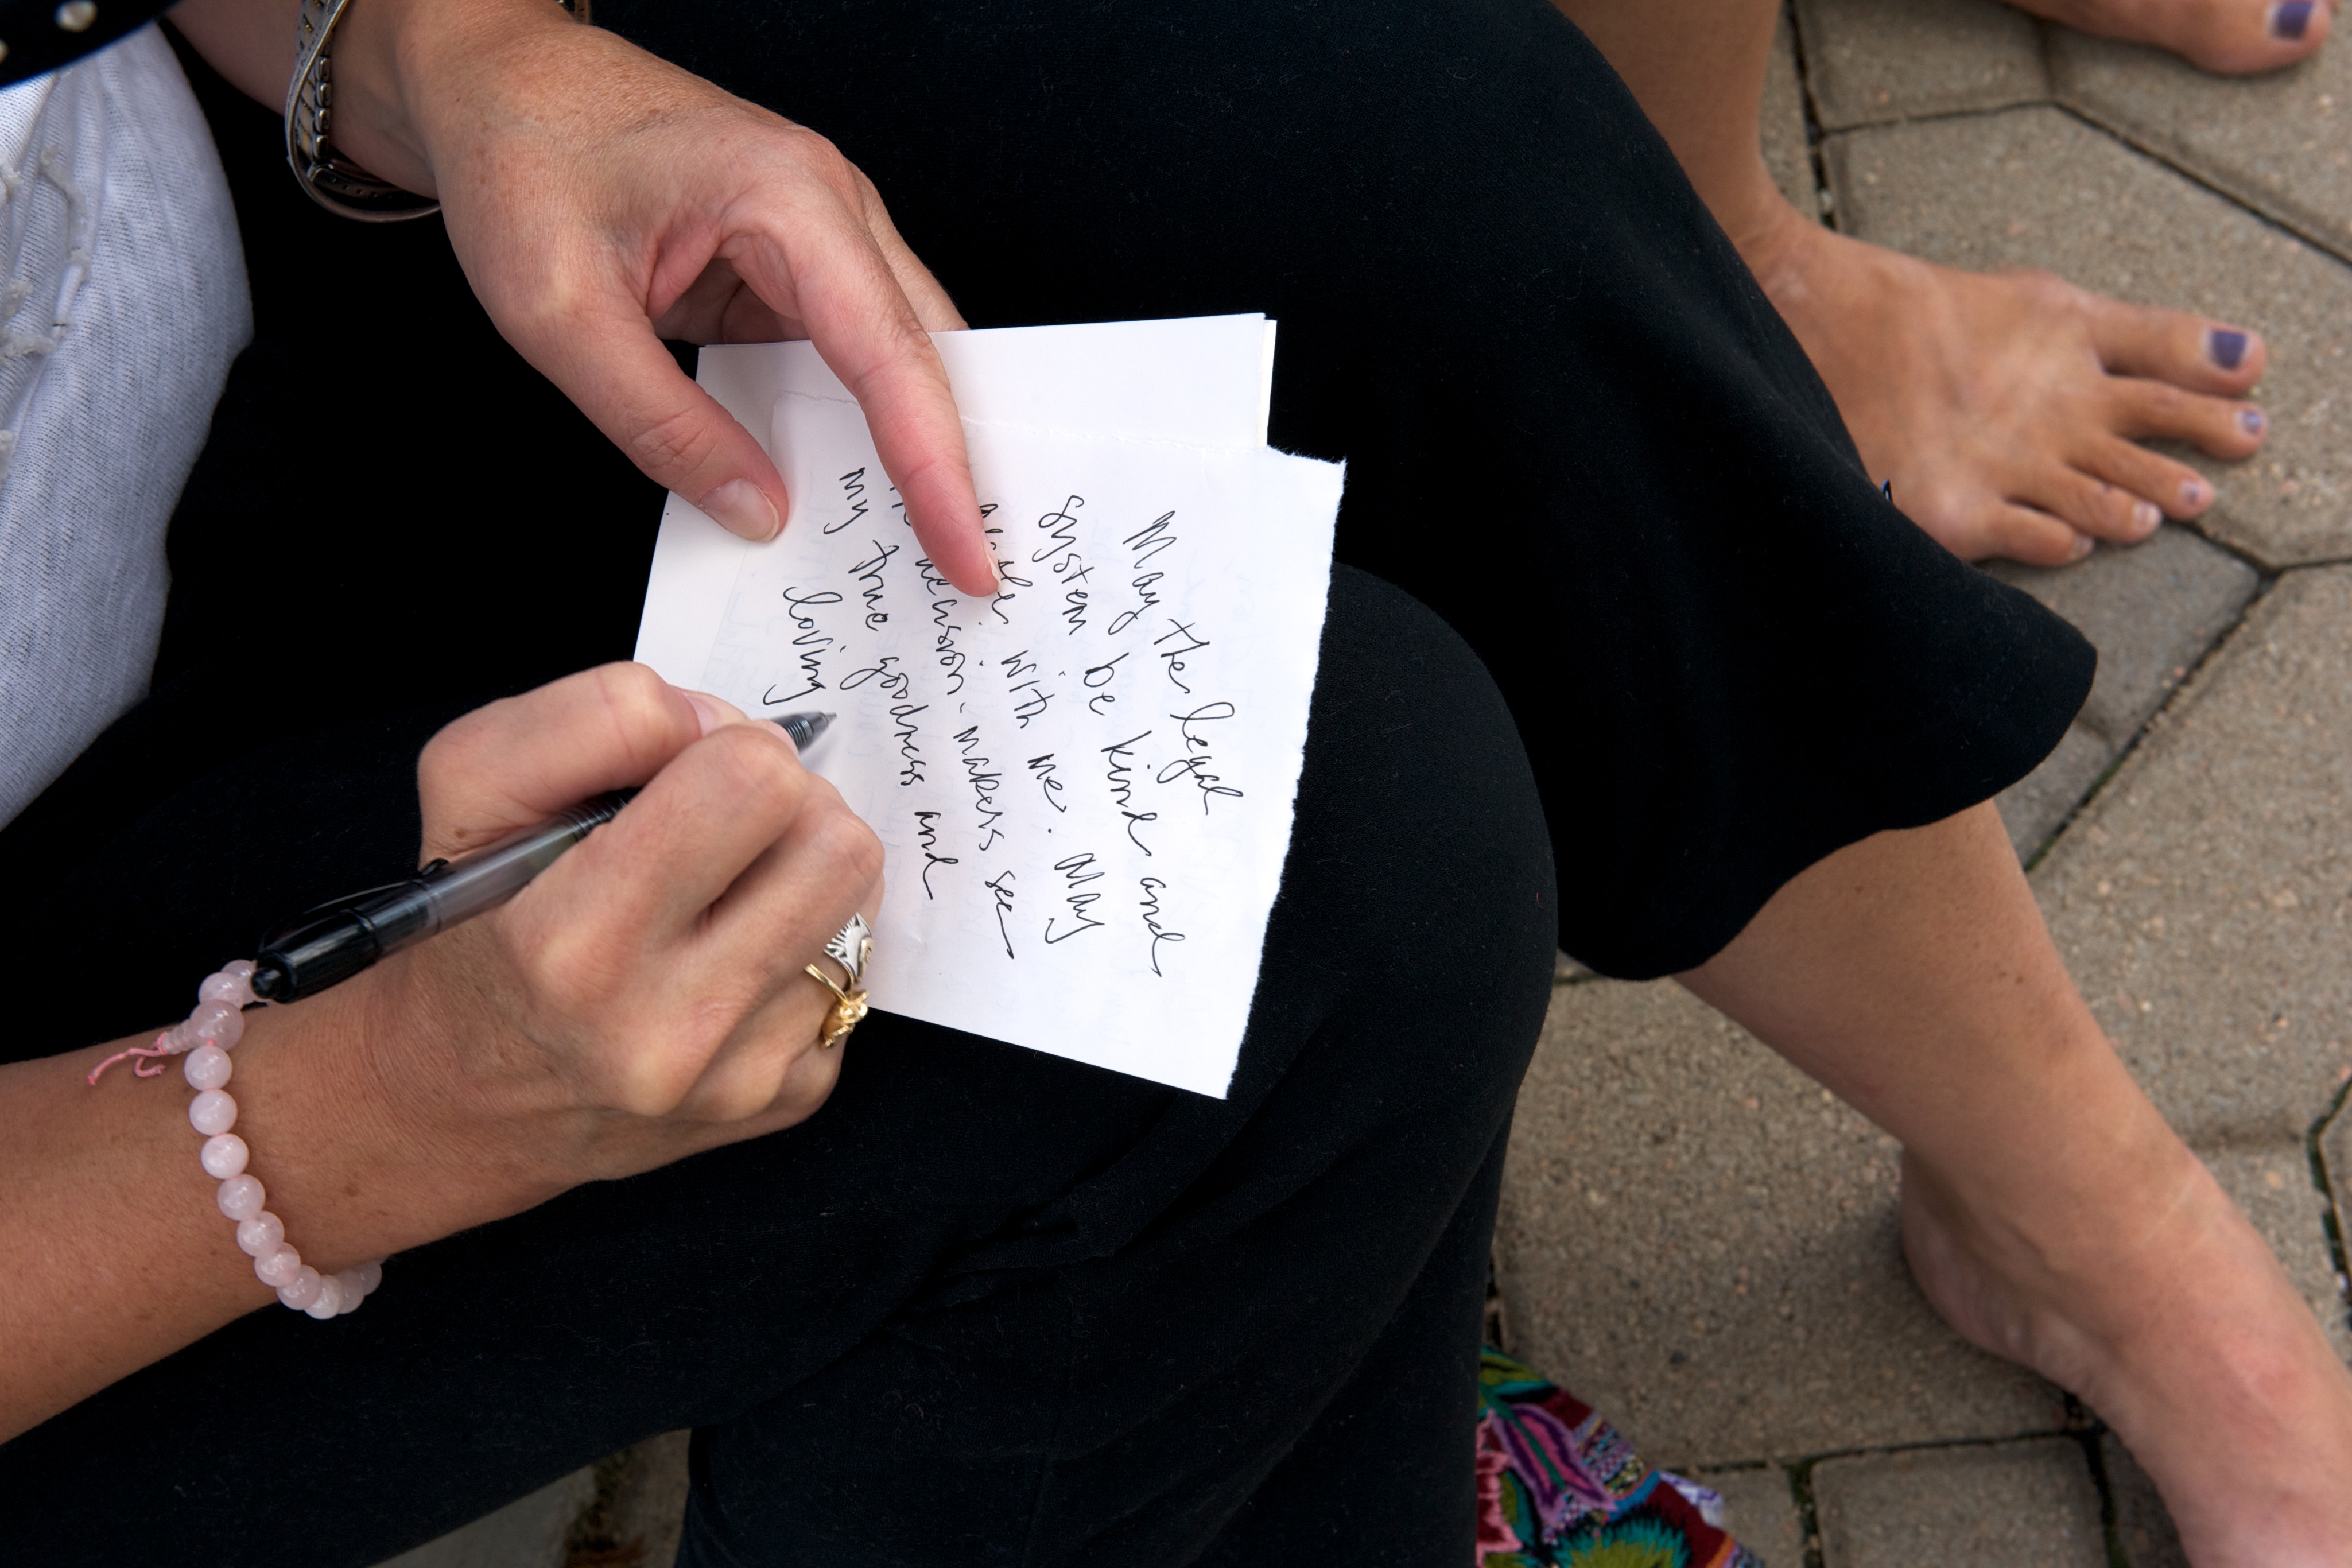 May the legal
system be kind and
gentle with me. May
decision-makers see
my true goodness and
loving